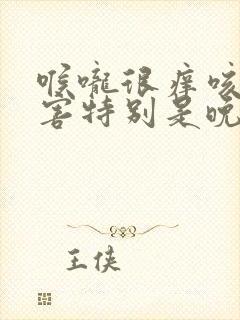 喉咙很痒咳
害特别是晚
王侠